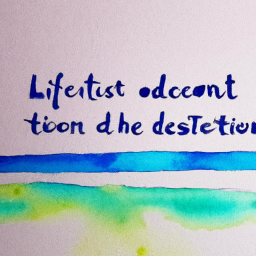 Lifeitist odceont
tioon d he desTetiur